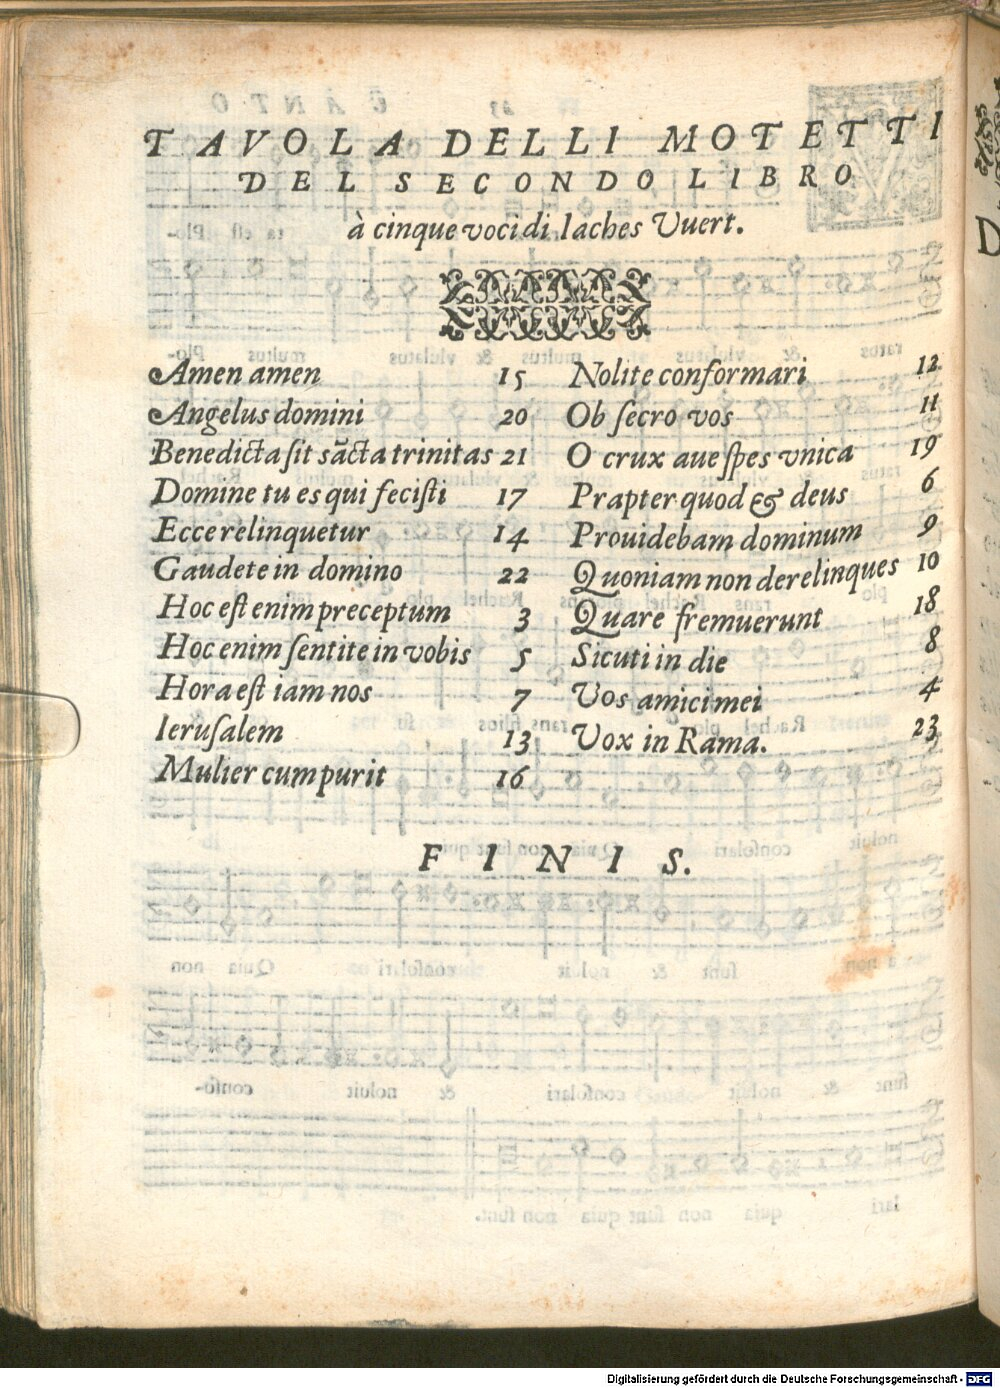 TAVOLA DELLI MOTETTI
DEL SECONDO LIBRO
à cinque voci di Iaches Vuert.
Amen amen 15
Angelus domini 20
Benedicta sit sãcta trinitas 21
Domine tu es qui fecisti 17
Ecce relinquetur 14
Gaudete in domino 22
Hoc est enim preceptum 3
Hoc enim sentite in vobis 5
Hora est iam nos 7
Ierusalem 13
Mulier cum purit 16
Nolite conformari 12
Ob secro vos 11
O crux aue spes vnica 19
Prapter quod & deus 6
Prouidebam dominum 9
Quoniam non derelinques 10
Quare fremuerunt 18
Sicuti in die 8
Vos amici mei 4
Vox in Rama. 23
FINIS.
Digitalisierung gefördert durch die Deutsche Forschungsgemeinschaft - DFG